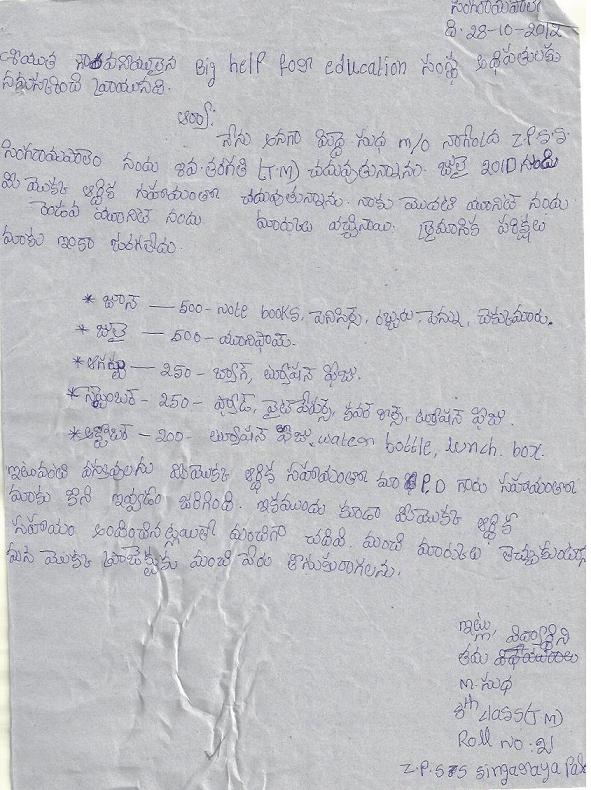 సింగరాయపాలెం
ది. 28-10-2012
గౌరవనీయులైన Big help for education సంస్థ అధిపతులకు
నమస్కరించి వ్రాయునది.
ఆర్య:
నేను అనగా సుధ m/o నాగేంద్ర Z.P.S.S
సింగరాయపాలెం నందు 8వ తరగతి (T.M) చదువుతున్నాను. జులై 2010 నుండి
మీ యొక్క ఆర్థిక సహాయంతో చదువుతున్నాను. నాకు మొదటి యూనిట్ నందు
రెండవ యూనిట్ నందు మార్కులు వచ్చినాయి. త్రైమాసిక పరీక్షలు
మాకు ఇంకా జరగలేదు.
* జూన్ — 500 - Note books, పెనిసిల్సు, రబ్బరు, పెన్ను, చెక్కుమారు.
* జులై — 500 - యూనిఫామ్.
* ఆగష్టు — 250 - బ్యాగ్, ట్యూషన్ ఫీజు.
* సెప్టెంబర్ - 250 - ట్యూషన్ ఫీజు.
* అక్టోబర్ - 200 - ట్యూషన్ ఫీజు, water bottle, lunch. box.
ఇటువంటి వస్తువులను మీయొక్క ఆర్థిక సహాయంతో మా P.D గారు సహాయంతో
మాకు కొని ఇవ్వడం జరిగింది. ఇకముందు కూడా మీయొక్క ఆర్థిక
సహాయం అందించినట్లయితే మంచిగా చదివి మంచి మార్కులు తెచ్చుకుంటాను
మన యొక్క ప్రాజెక్టుకు మంచి పేరు తీసుకురాగలను.
ఇట్లు,
తమ విద్యార్థిని
M. సుధ
8th class (T.M)
Roll no : 21
Z.P.S&S Singaraya Pale